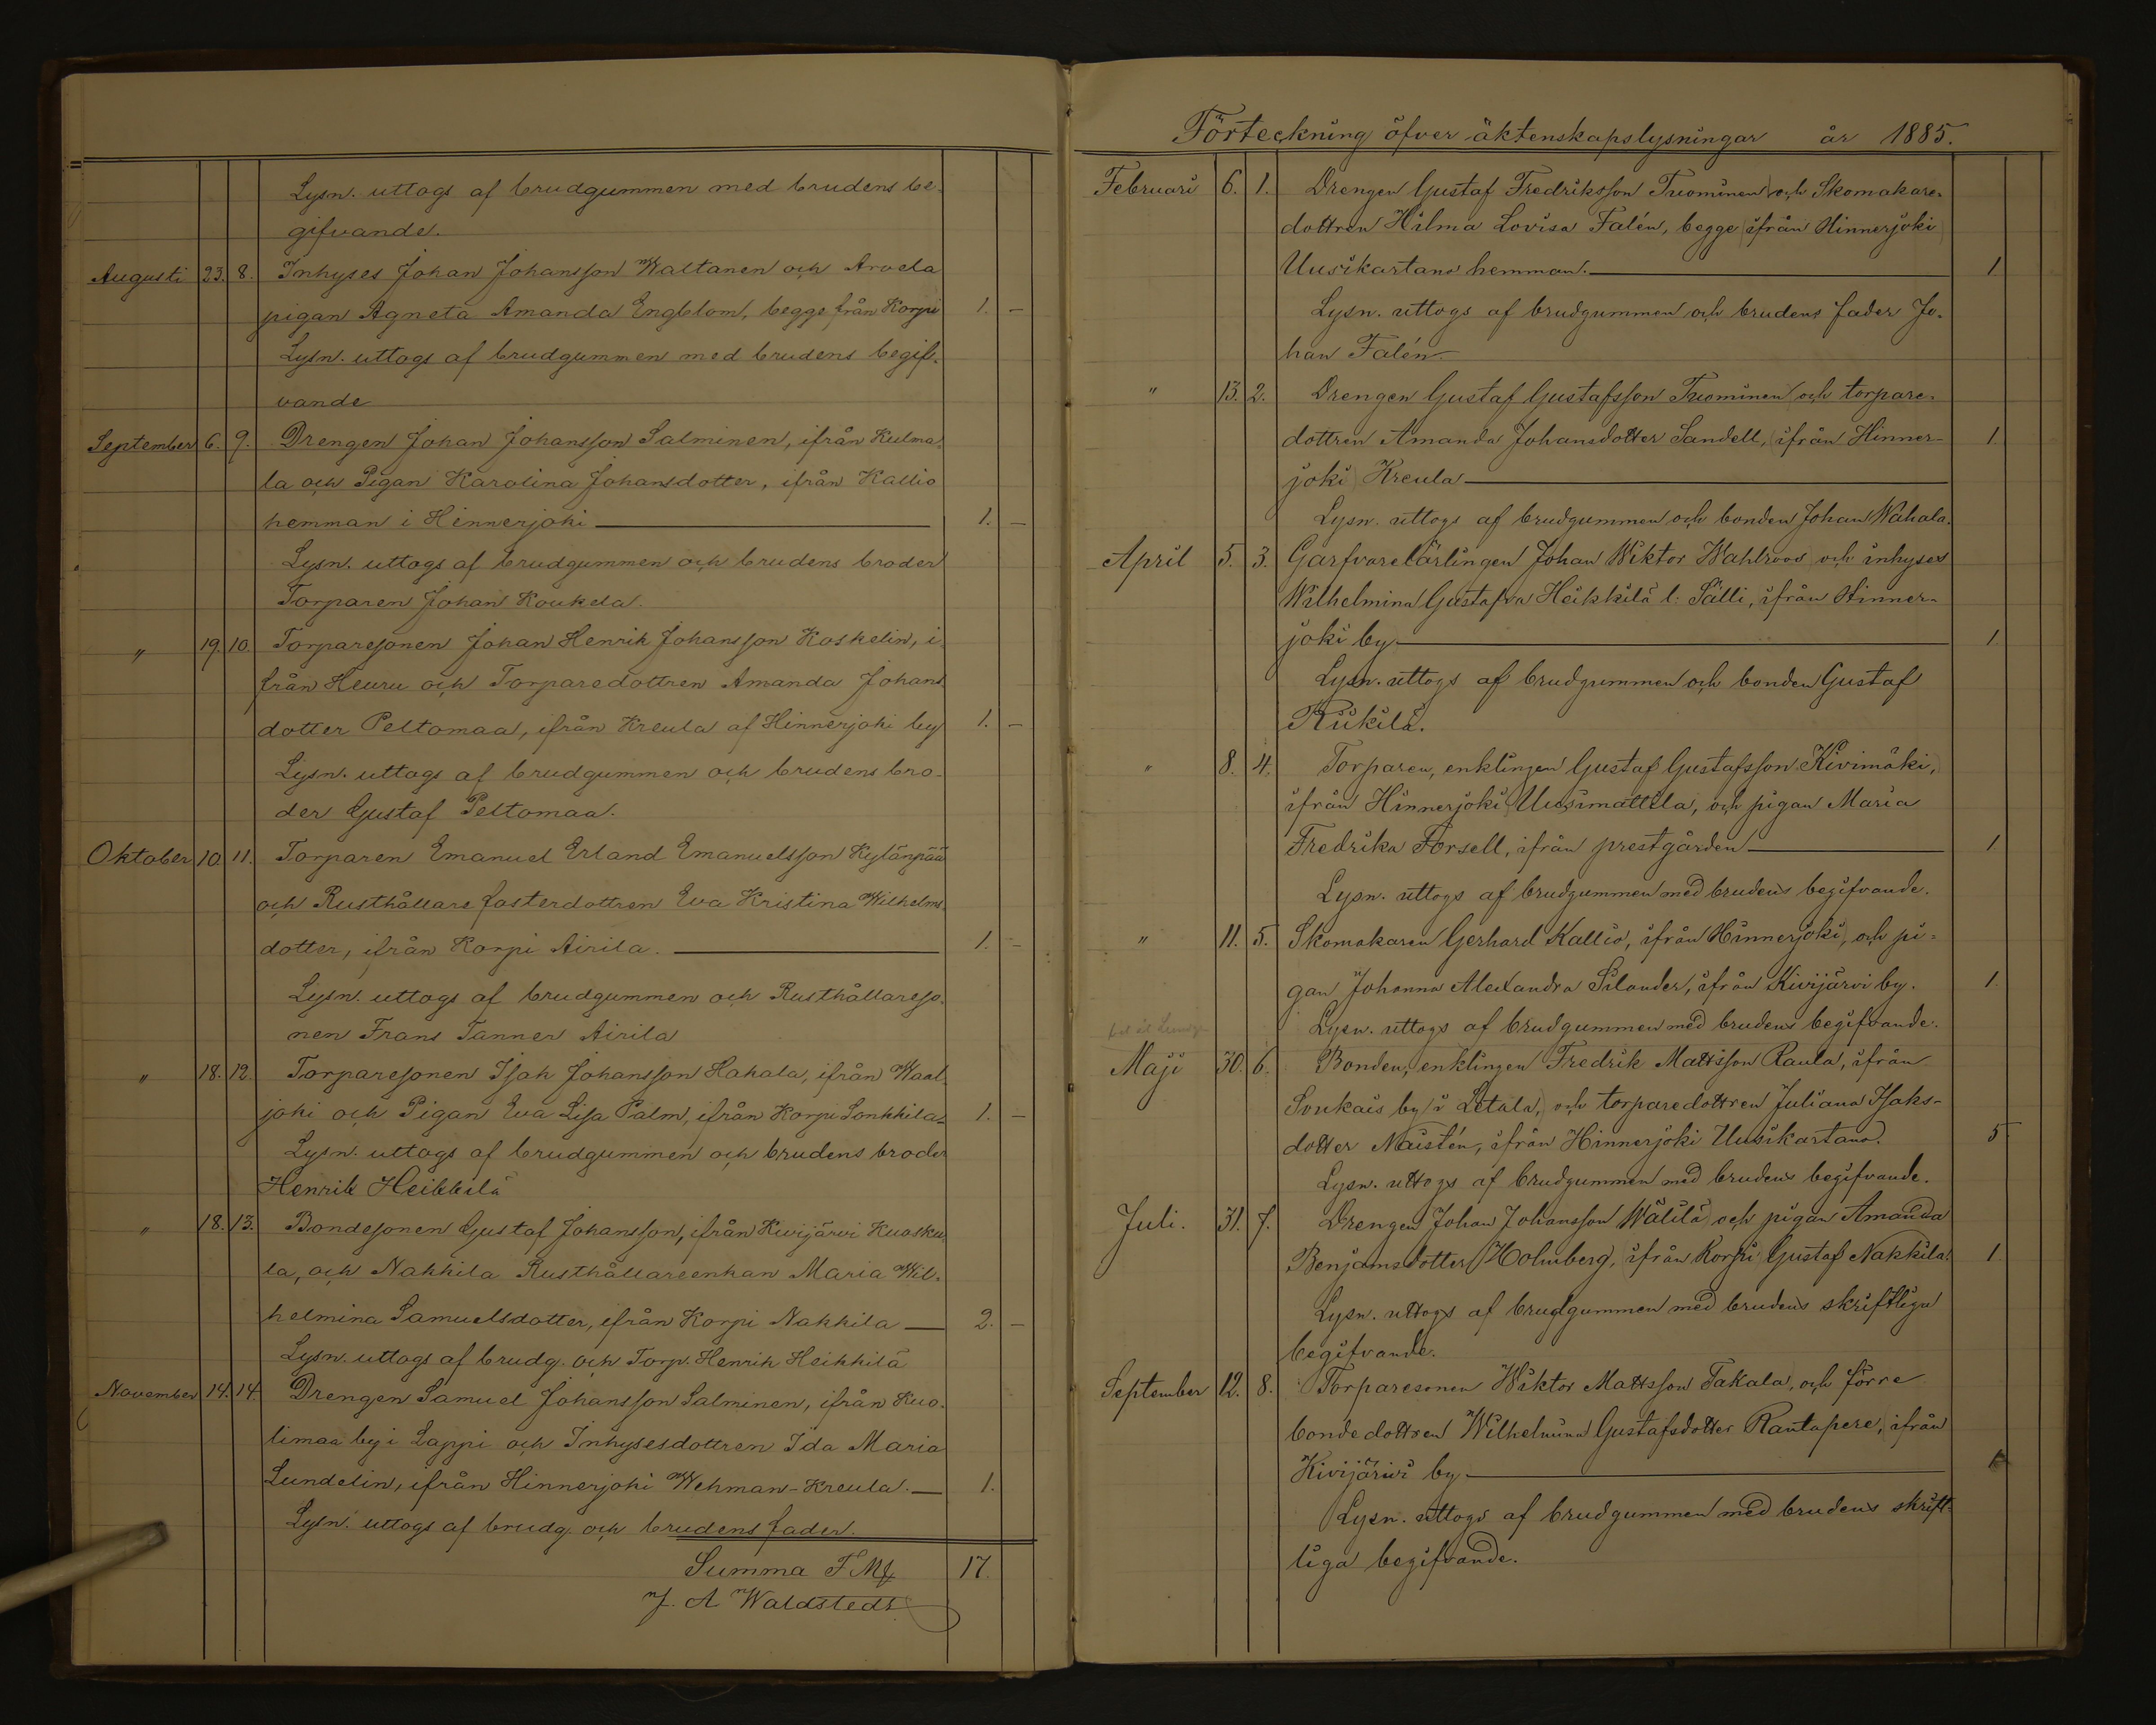 Lysn. uttogs af brudgummen med brudens be-
gifvande.
Augusti 23. 8. Inhyses Johan Johansson Waltanen och Arvela
pigan Agneta Amanda Engblom, begge från Korpi 1. –
Lysn. uttogs af brudgummen med brudens begif-
vande
September 6. 9. Drengen Johan Johansson Salminen, ifrån Kulma-
la och Pigan Karolina Johansdotter, ifrån Kallio
hemman i Hinnerjoki 1. –
Lysn. uttogs af brudgummen och brudens broder
Torparen Johan Koukela.
" 19. 10. Torparesonen Johan Henrik Johansson Koskelin, i-
från Heuru och Torparedottren Amanda Johans-
dotter Peltomaa, ifrån Kreula af Hinnerjoki by 1. –
Lysn. uttogs af brudgummen och brudens bro-
der Gustaf Peltomaa.
Oktober 10. 11. Torparen Emanuel Erland Emanuelsson Kylänpää
och Rusthållare fosterdottren Eva Kristina Wilhelms-
dotter, ifrån Korpi Airila. 1. –
Lysn. uttogs af brudgummen och Rusthållareso-
nen Frans Tanner Airila
" 18. 12. Torparesonen Isak Johansson Hakala, ifrån Waal-
joki och Pigan Eva Lisa Palm, ifrån Korpi Sonkkila 1. –
Lysn. uttogs af brudgummen och brudens broder
Henrik Heikkilä
" 18. 13. Bondesonen Gustaf Johansson, ifrån Kivijärvi Kuosku-
la, och Nakkila Rusthållareenkan Maria Wil-
helmina Samuelsdotter, ifrån Korpi Nakkila 2. –
Lysn. uttogs af brudg. och Torp. Henrik Heikkilä
November 14. 14. Drengen Samuel Johansson Salminen, ifrån Kuo-
limaa by i Lappi och Inhysesdottren Ida Maria
Lundelin, ifrån Hinnerjoki Wehman-Kreula. 1.
Lysn. uttogs af brudg. och brudens fader.
Summa FMk 17.
J. A Waldstedt
Förteckning öfver äktenskapslysningar år 1885.
Februari 6. 1. Drengen Gustaf Fredriksson Tuominen och Skomakare-
dottren Hilma Lovisa Falén, begge ifrån Hinnerjoki
Uusikartano hemman. 1
Lysn. uttogs af brudgummen och brudens fader Jo-
han Falén.
" 13. 2. Drengen Gustaf Gustafsson Tuominen och torpare-
dottren Amanda Johansdotter Sandell, ifrån Hinner- 1
joki Kreula
Lysn. uttogs af brudgummen och bonden Johan Wahala.
April 5. 3. Garfvarelärlingen Johan Wiktor Wahlroos och inhyses
Wilhelmina Gustafva Heikkilä l. Sälli, ifrån Hinner-
joki by 1
Lysn. uttogs af brudgummen och bonden Gustaf
Riikilä.
" 8. 4. Torparen, enklingen Gustaf Gustafsson Kivimäki,
ifrån Hinnerjoki Uusimattila, och pigan Maria
Fredrika Forsell, ifrån prestgården 1
Lysn. uttogs af brudgummen med brudens begifvande.
" 11. 5. Skomakaren Gerhard Kallio, ifrån Hinnerjoki, och pi-
gan Johanna Alexandra Silander, ifrån Kivijärvi by. 1
Lysn. uttogs af brudgummen med brudens begifvande.
Maji 30. 6. Bonden, enklingen Fredrik Mattsson Raula, ifrån
Soukais by i Letala, och torparedottren Juliana Isaks-
dotter Naistén, ifrån Hinnerjoki Uusikartano. 5
Lysn. uttogs af brudgummen med brudens begifvande.
Juli. 31. 7. Drengen Johan Johansson Wälilä och pigan Amanda
Benjamsdotter Holmberg, ifrån Korpi Gustaf Nakkila. 1
Lysn. uttogs af brudgummen med brudens skriftliga
begifvande.
September 12. 8. Torparesonen Wiktor Mattsson Takala, och förre
bondedottren Wilhelmina Gustafsdotter Rantapere, ifrån
Kivijärvi by 1
Lysn. uttogs af brudgummen med brudens skrift-
liga begifvande.